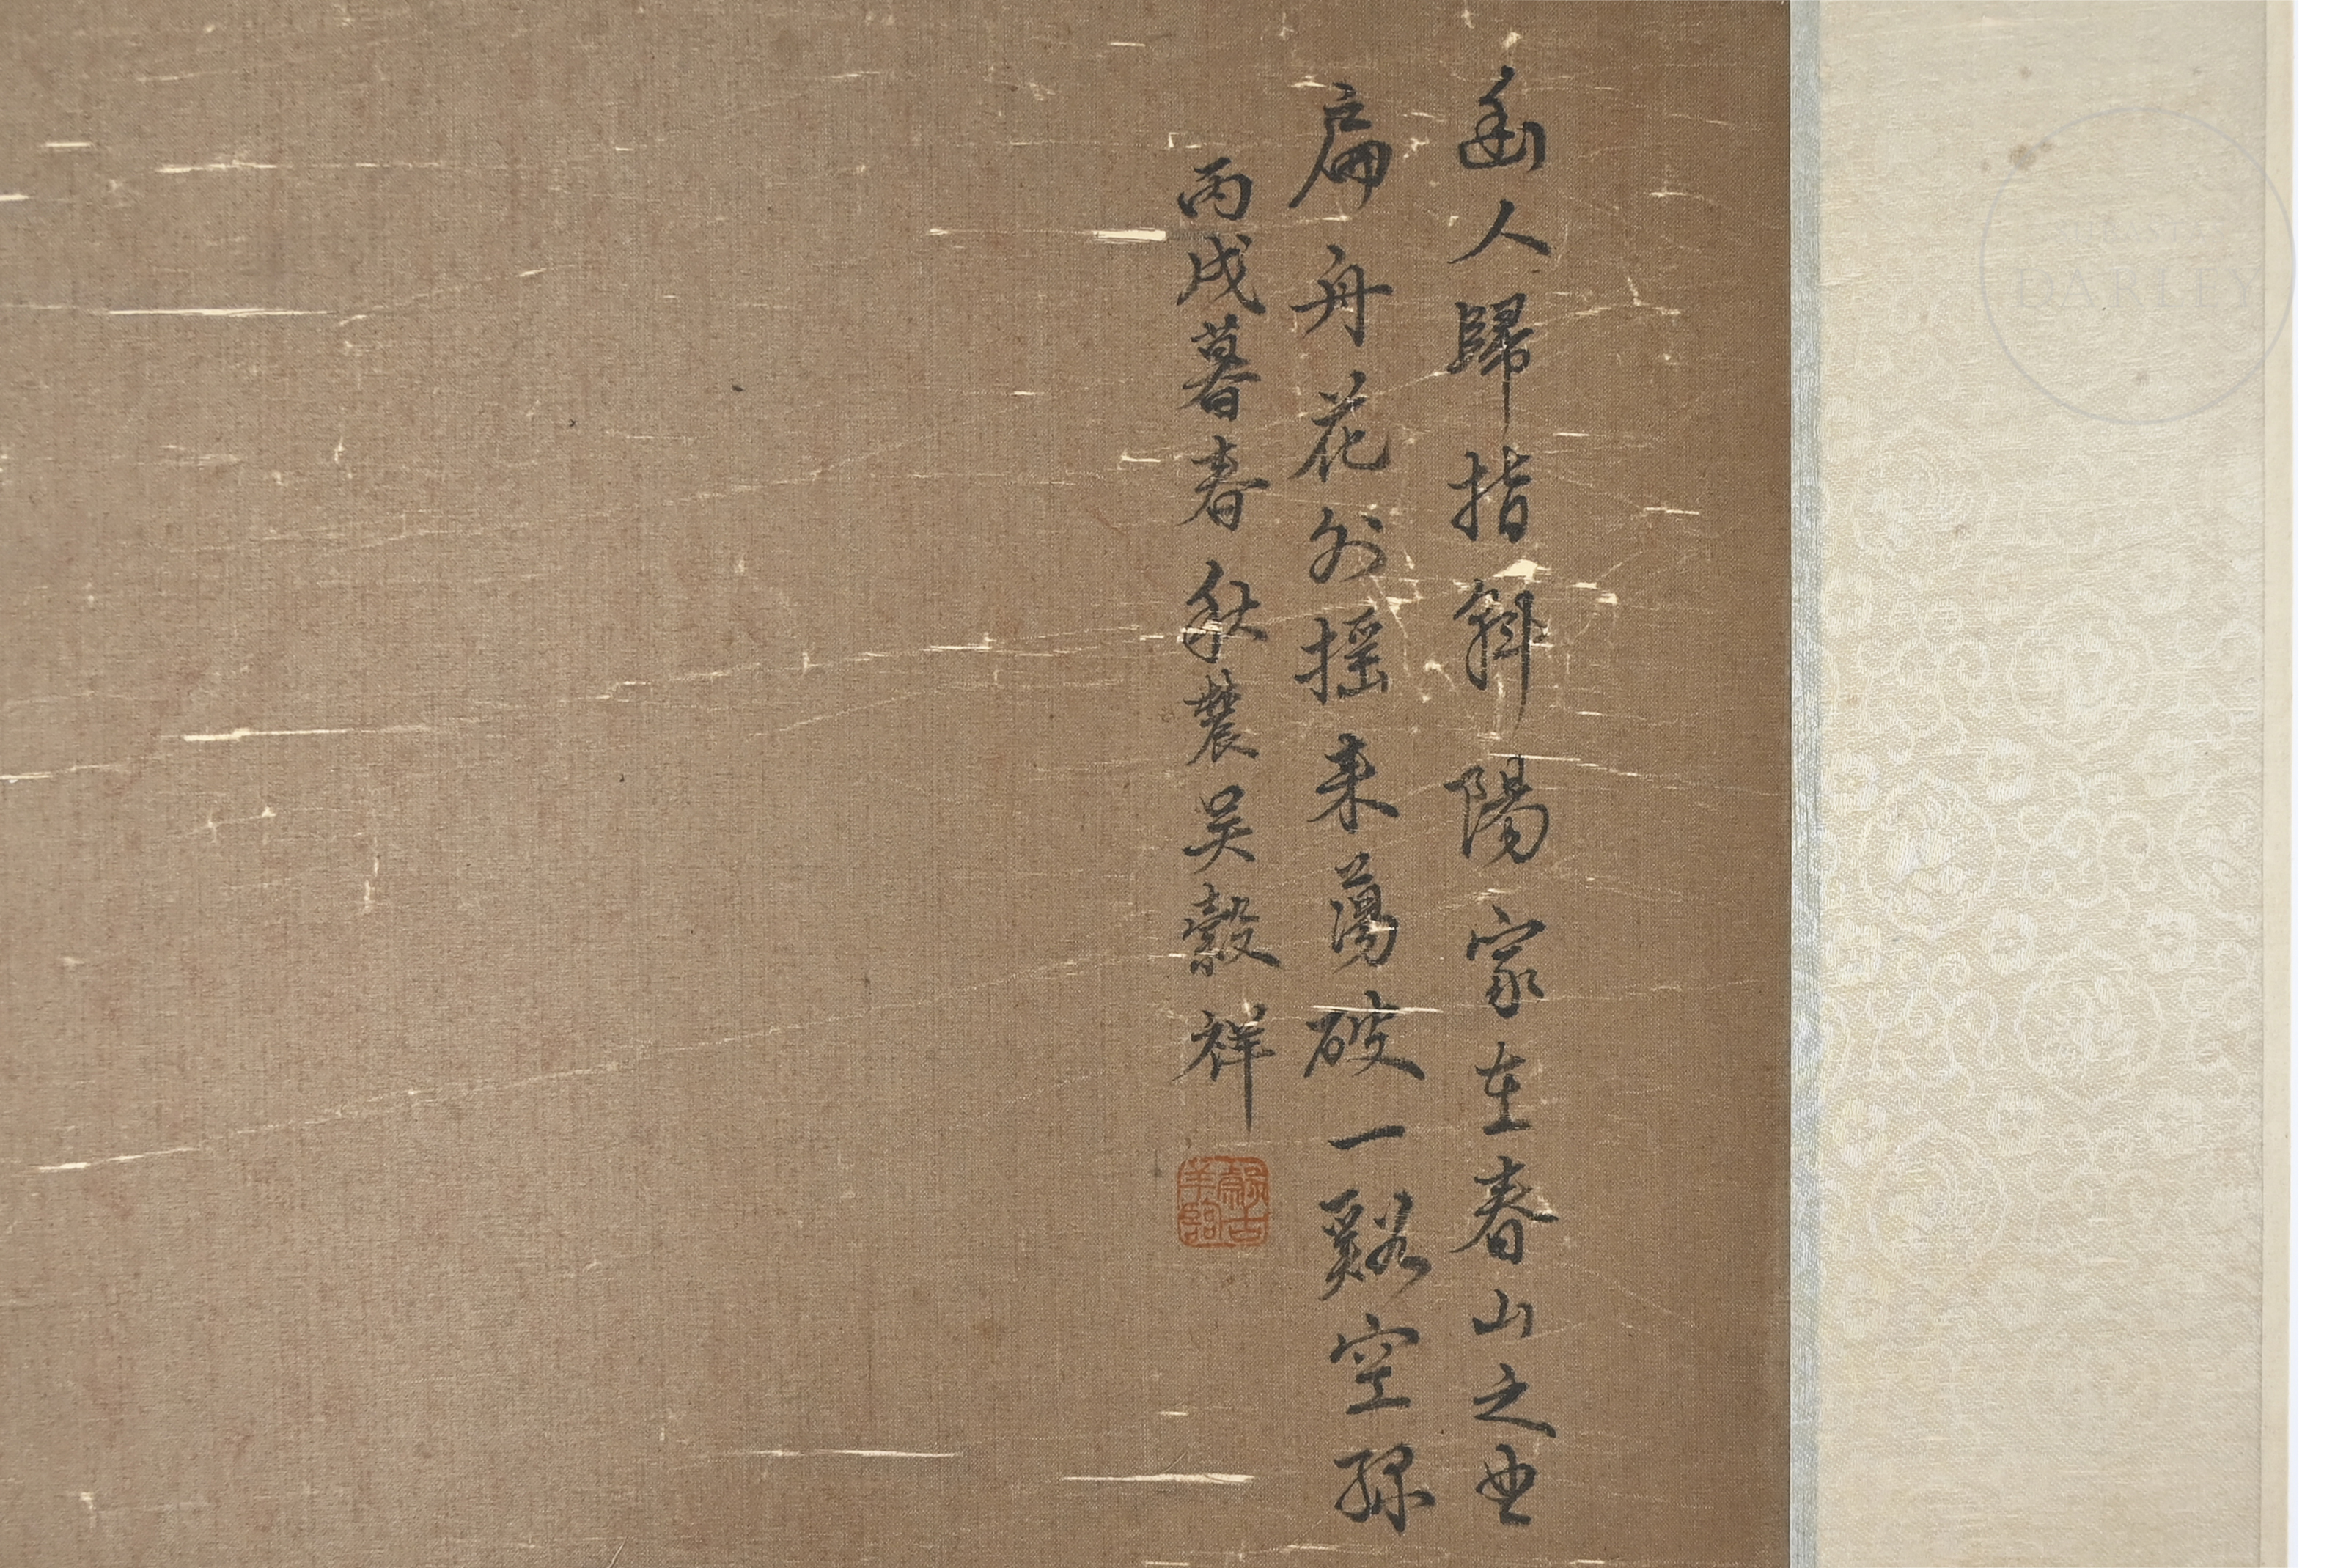 幽人歸指斜陽家在春山之曲
扁舟花外摇来蕩破一谿空綠
丙戌暮春秋農吴穀祥